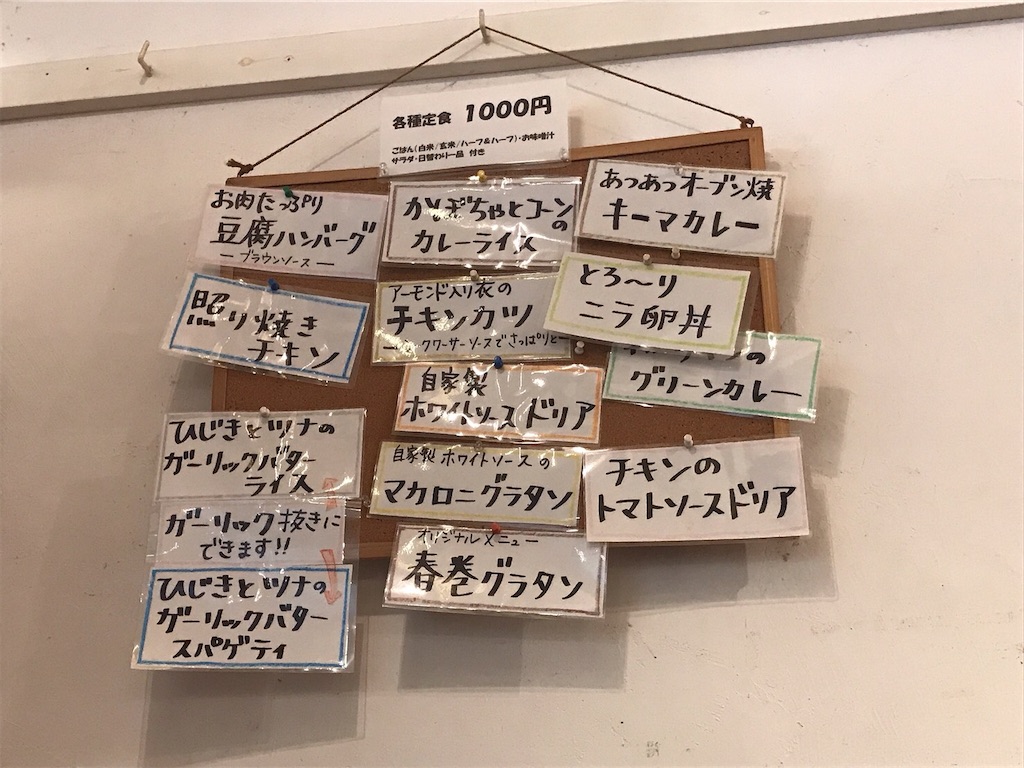 各種定食 1000円
ごはん(白米/玄米/ハーフ&ハーフ)・お味噌汁
サラダ・日替わり一品 付き
お肉たっぷり
豆腐ハンバーグ
―ブラウンソース―
かぼちゃとコーンの
カレーライス
あつあつオーブン焼
キーマカレー
照り焼き
チキン
アーモンド入り衣の
チキンカツ
クワーサーソースでさっぱりと―
とろ〜り
ニラ卵丼
の
グリーンカレー
自家製
ホワイトソースドリア
ひじきとツナの
ガーリックバター
ライス
ガーリック抜きに
できます!!
ひじきとツナの
ガーリックバター
スパゲティ
自家製ホワイトソースの
マカロニグラタン
チキンの
トマトソースドリア
オリジナルメニュー
春巻グラタン